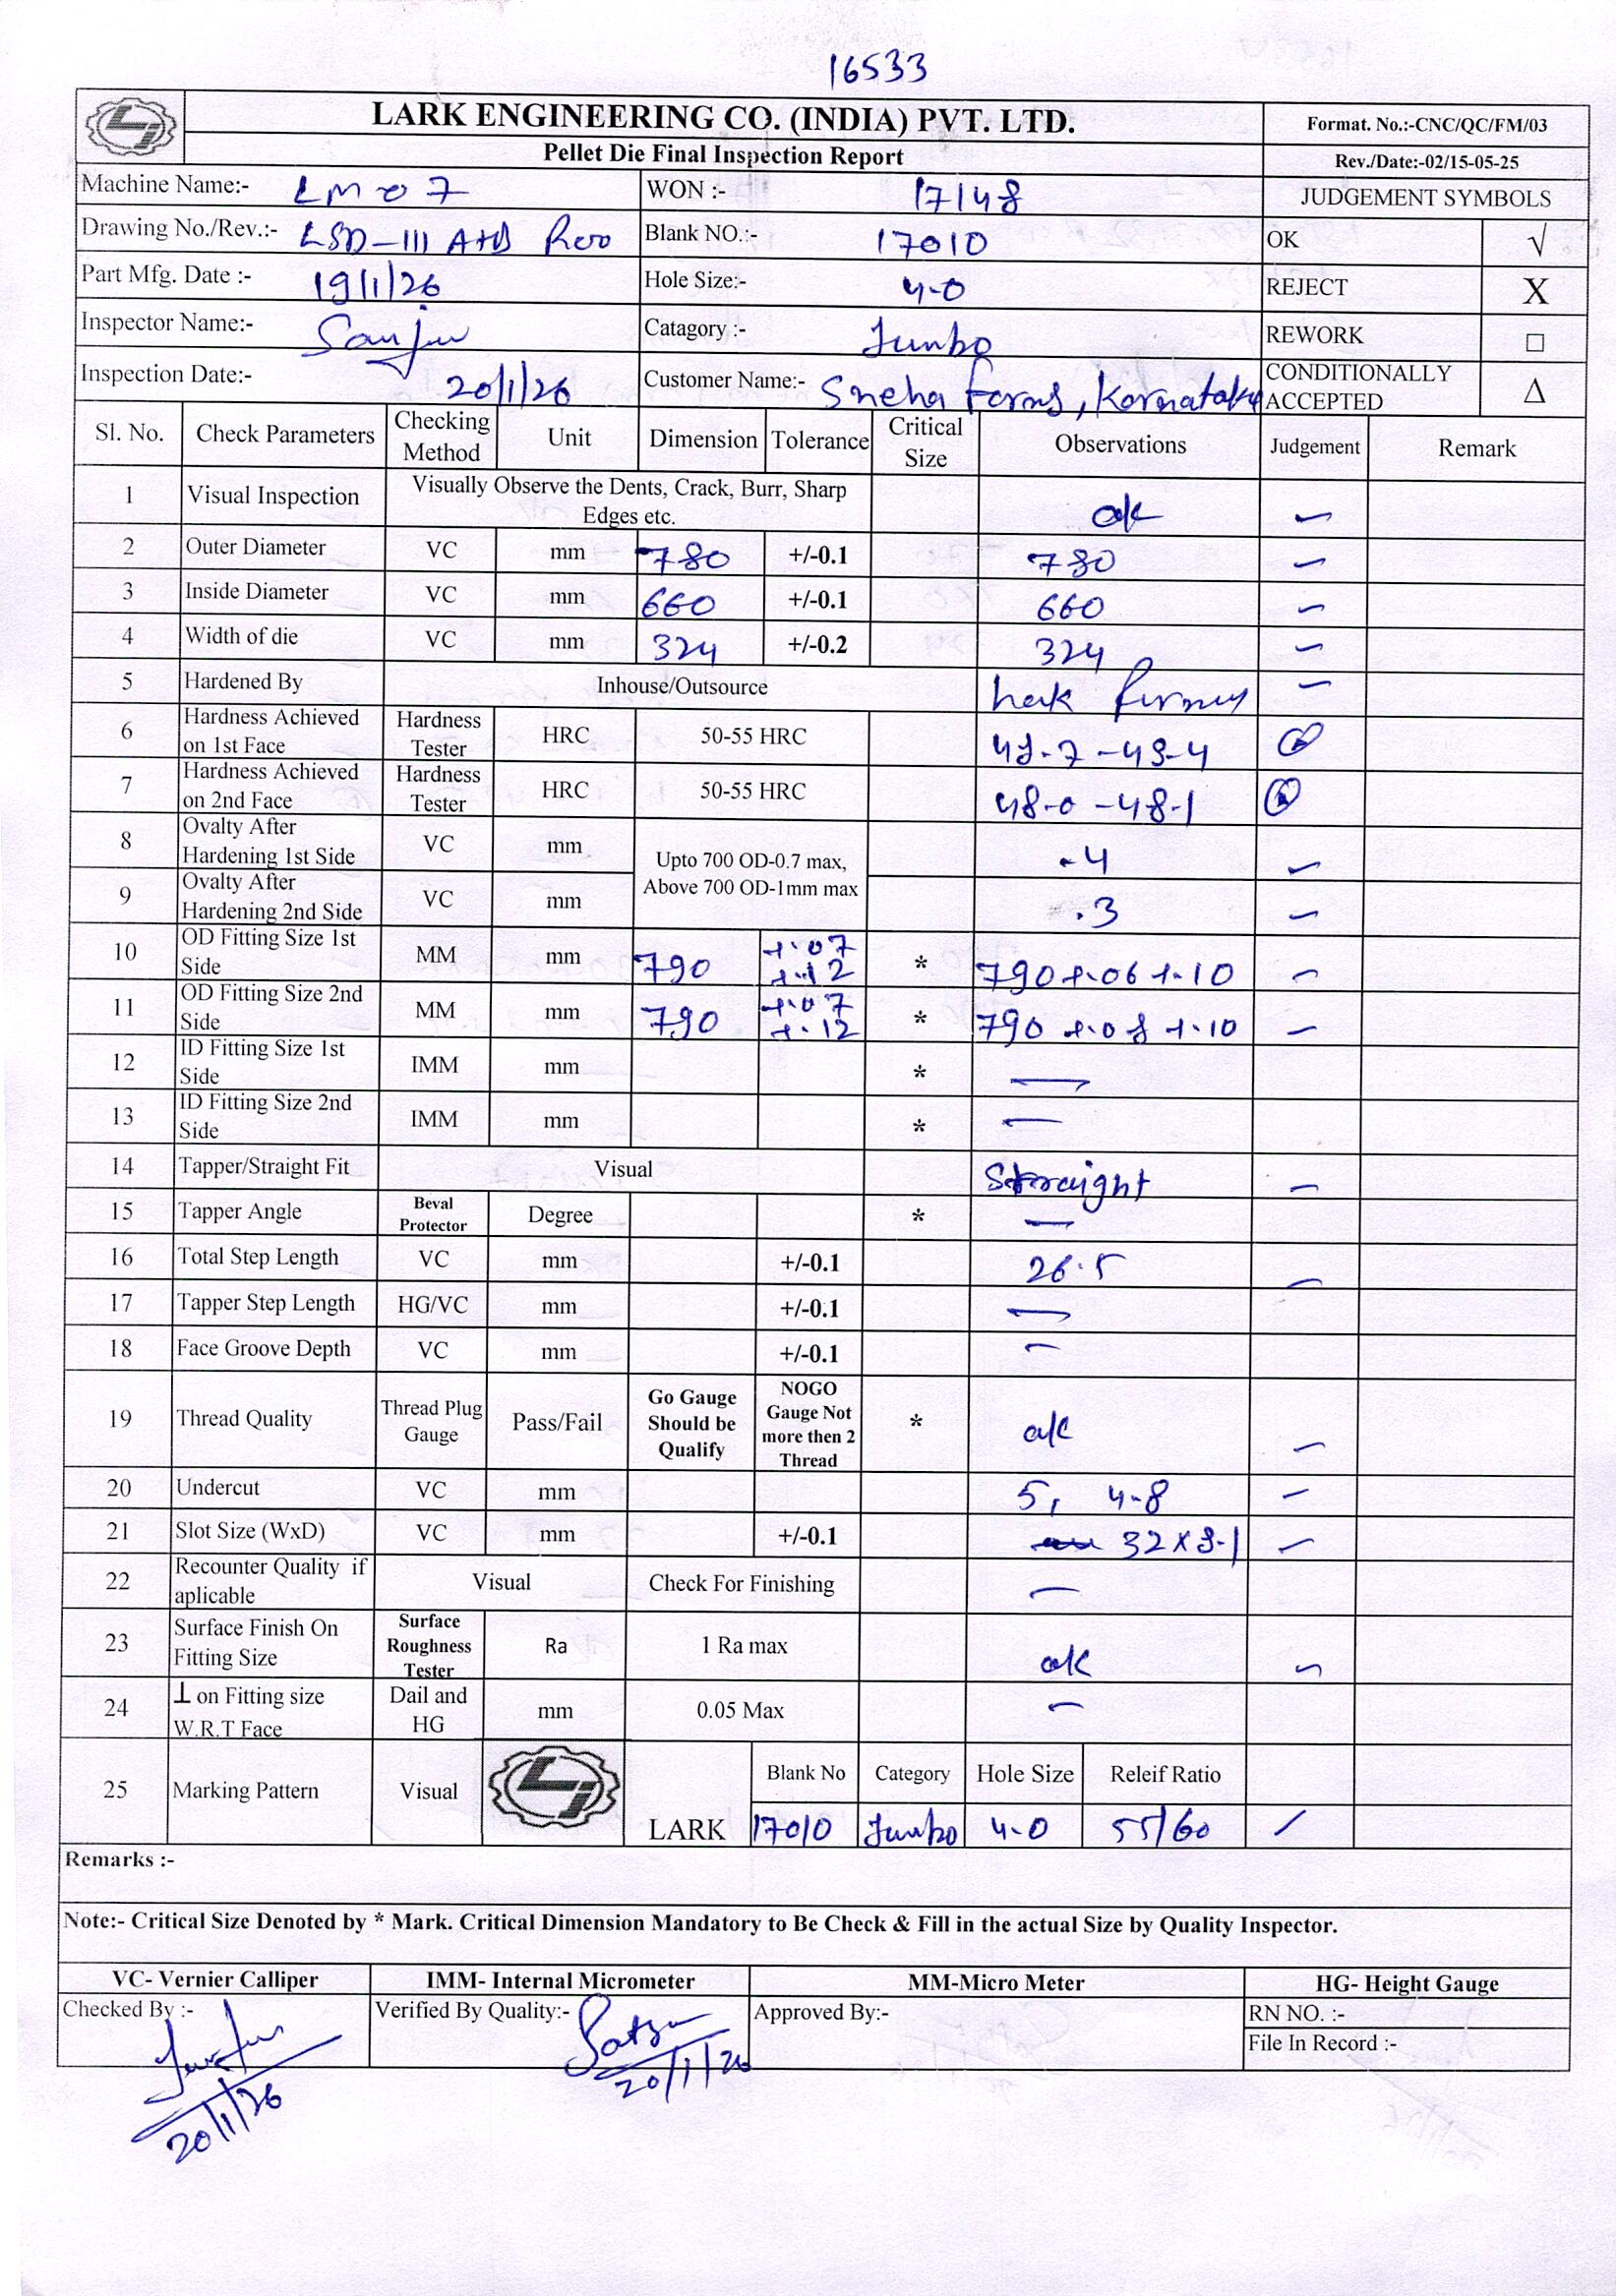 16533
LARK ENGINEERING CO. (INDIA) PVT. LTD.
Format. No.:-CNC/QC/FM/03
Pellet Die Final Inspection Report
Rev./Date:-02/15-05-25
Machine Name:- LM07 WON :- 17148 JUDGEMENT SYMBOLS
Drawing No./Rev.:- LSD-III A+B Roo Blank NO.:- 17010 OK √
Part Mfg. Date :- 19/1/26 Hole Size:- 4.0 REJECT X
Inspector Name:- Sanju Catagory :- Jumbo REWORK □
Inspection Date:- 20/1/26 Customer Name:- Sneha Farms, Karnataka CONDITIONALLY ACCEPTED Δ
Sl. No. Check Parameters Checking Method Unit Dimension Tolerance Critical Size Observations Judgement Remark
1 Visual Inspection Visually Observe the Dents, Crack, Burr, Sharp Edges etc. ok
2 Outer Diameter VC mm 780 +/-0.1 780
3 Inside Diameter VC mm 660 +/-0.1 660
4 Width of die VC mm 324 +/-0.2 324
5 Hardened By Inhouse/Outsource
6 Hardness Achieved on 1st Face Hardness Tester HRC 50-55 HRC
7 Hardness Achieved on 2nd Face Hardness Tester HRC 50-55 HRC 48.0 - 48.1
8 Ovalty After Hardening 1st Side VC mm Upto 700 OD-0.7 max, Above 700 OD-1mm max .4
9 Ovalty After Hardening 2nd Side VC mm .3
10 OD Fitting Size 1st Side MM mm 790 +.07 +.12 * 790 +.06 +.10
11 OD Fitting Size 2nd Side MM mm 790 +.07 +.12 * 790 +.08 +.10
12 ID Fitting Size 1st Side IMM mm * —
13 ID Fitting Size 2nd Side IMM mm * —
14 Tapper/Straight Fit Visual Straight
15 Tapper Angle Beval Protector Degree * —
16 Total Step Length VC mm +/-0.1 26.5
17 Tapper Step Length HG/VC mm +/-0.1 —
18 Face Groove Depth VC mm +/-0.1 —
19 Thread Quality Thread Plug Gauge Pass/Fail Go Gauge Should be Qualify NOGO Gauge Not more then 2 Thread * ok
20 Undercut VC mm 5, 4.8
21 Slot Size (WxD) VC mm +/-0.1 32 x 8.1
22 Recounter Quality if aplicable Visual Check For Finishing —
23 Surface Finish On Fitting Size Surface Roughness Tester Ra 1 Ra max ok
24 ⊥ on Fitting size W.R.T Face Dail and HG mm 0.05 Max —
25 Marking Pattern Visual LARK Blank No Category Hole Size Releif Ratio
17010 Jumbo 4.0 55/60
Remarks :-
Note:- Critical Size Denoted by * Mark. Critical Dimension Mandatory to Be Check & Fill in the actual Size by Quality Inspector.
VC- Vernier Calliper IMM- Internal Micrometer MM-Micro Meter HG- Height Gauge
Checked By :- Verified By Quality:- Approved By:- RN NO. :-
File In Record :-
20/1/26 20/1/26